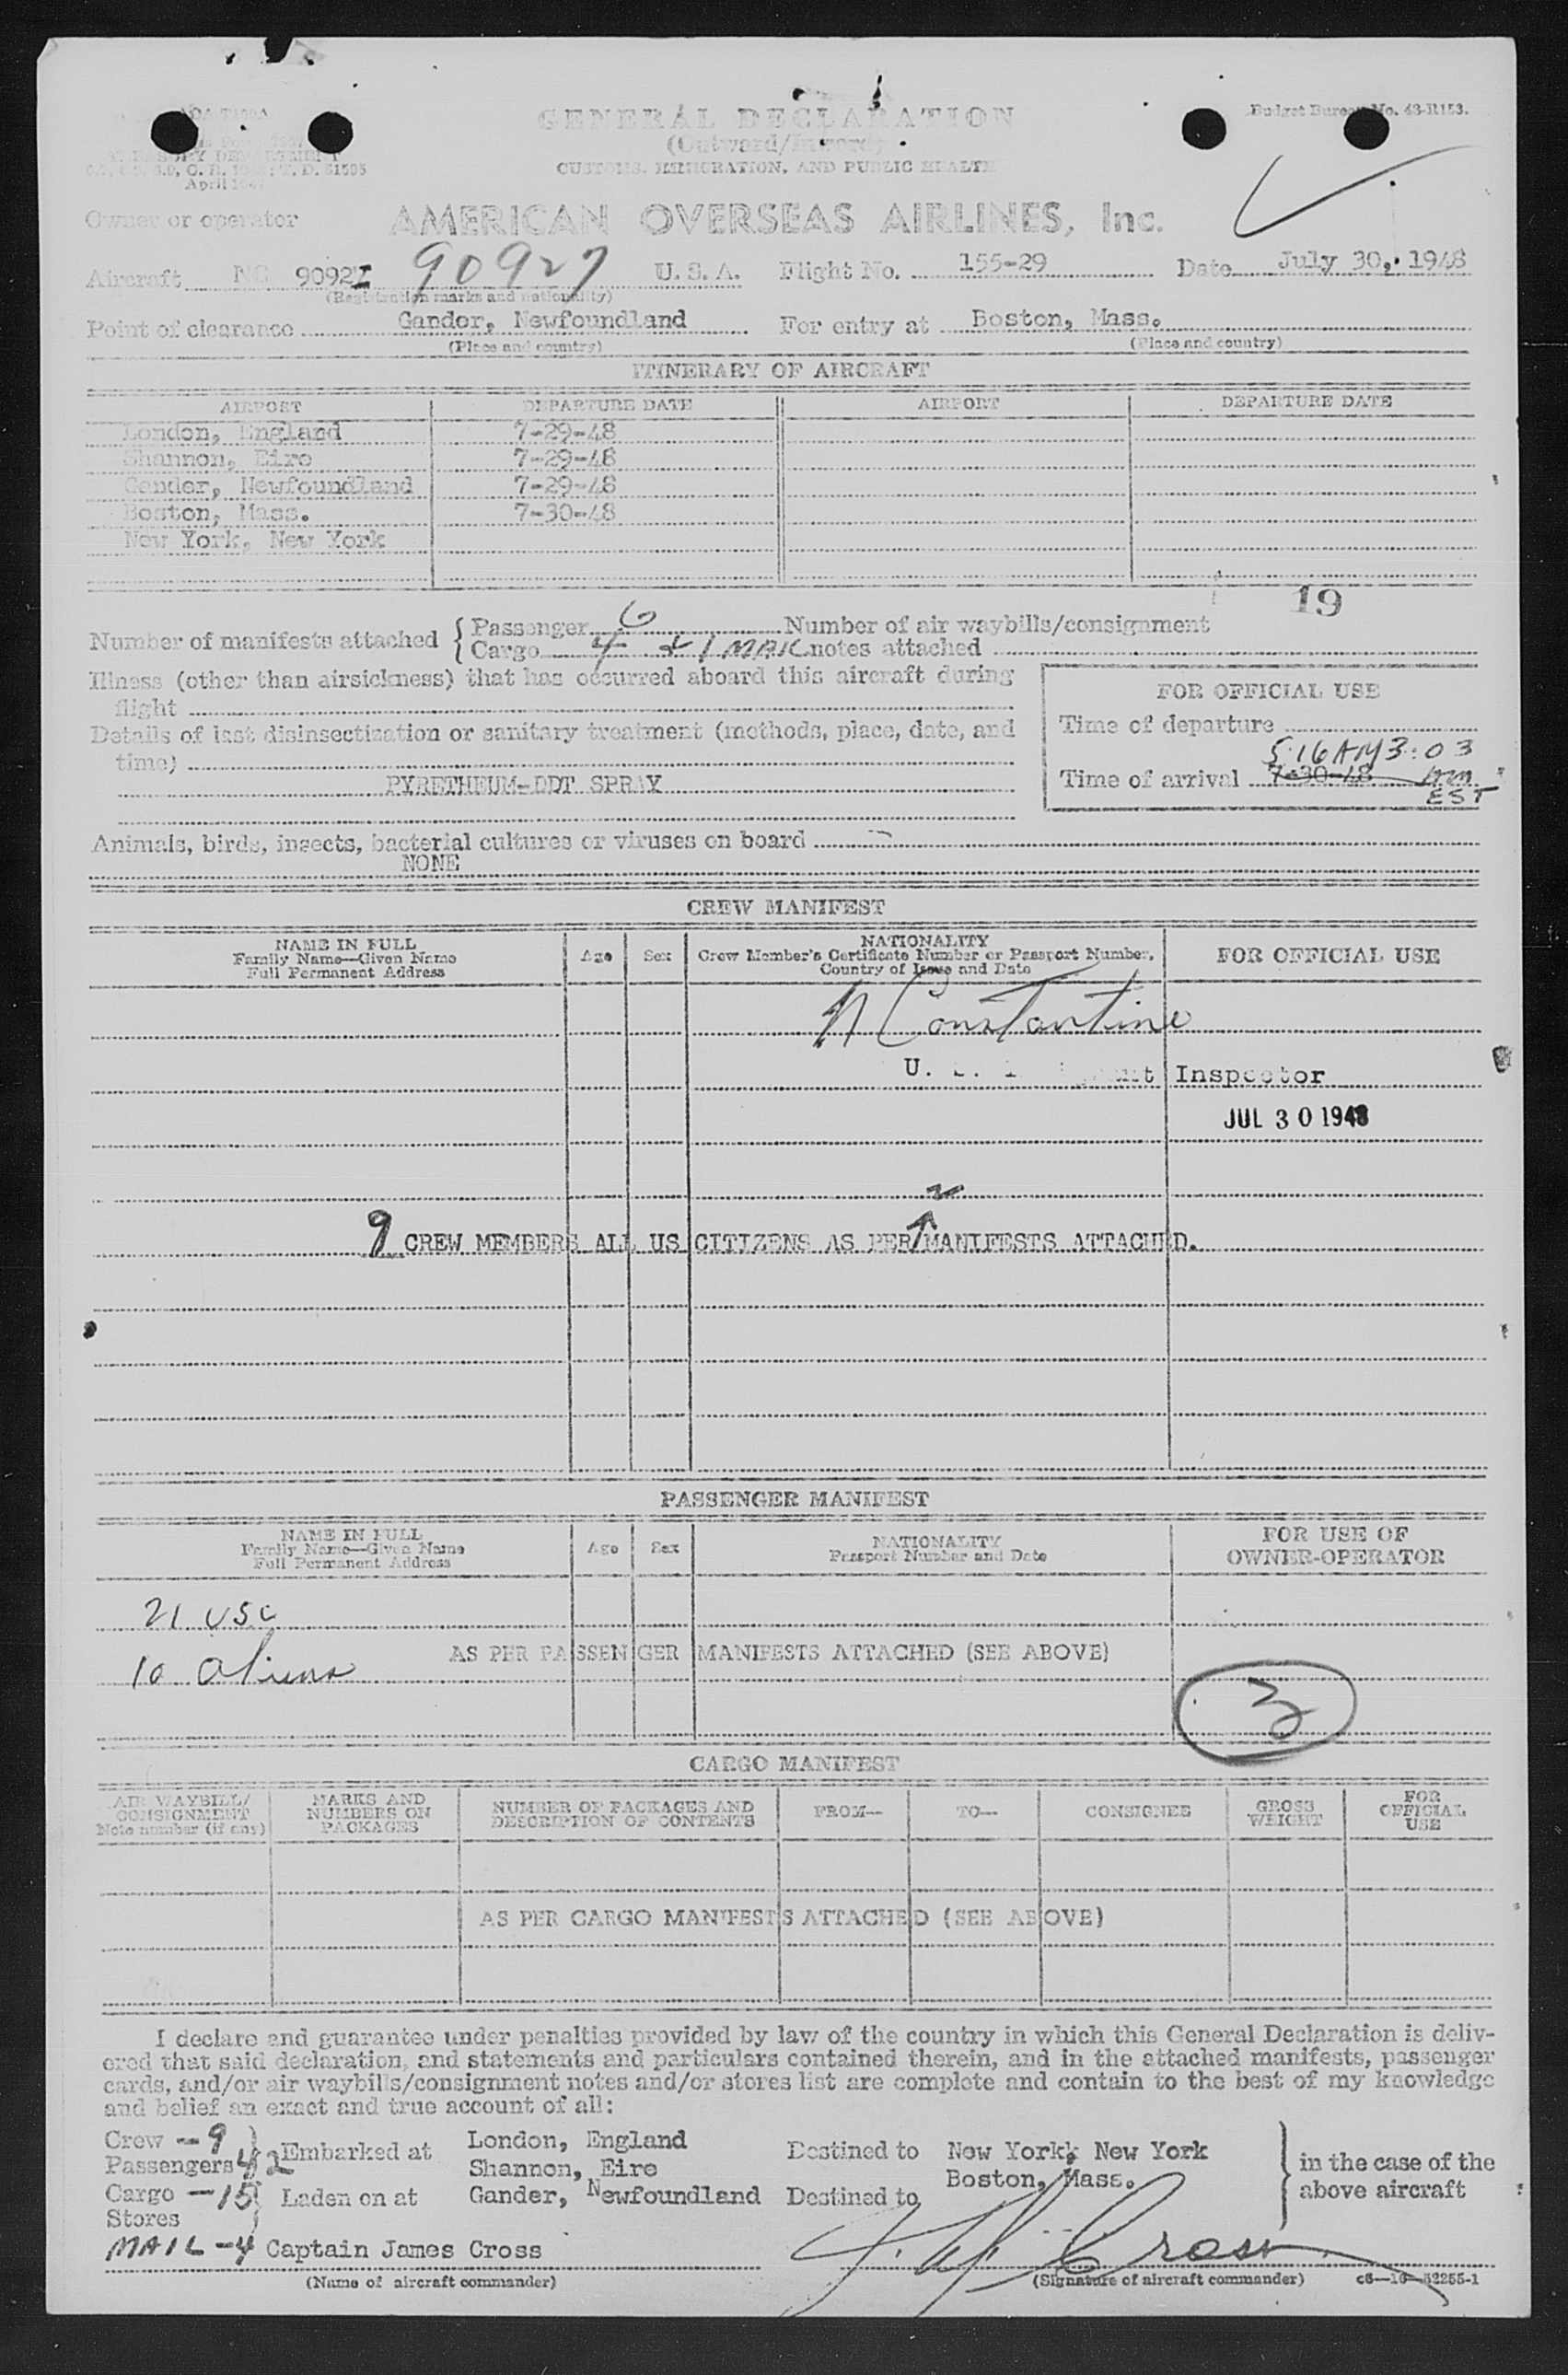 GENERAL DECLARATION
(Outward/Inward)
CUSTOMS, IMMIGRATION, AND PUBLIC HEALTH
Budget Bureau No. 43-R153.
T. D. 51595
April
Owner or operator AMERICAN OVERSEAS AIRLINES, Inc.
Aircraft NC 9092 90927 U. S. A. Flight No. 155-29 Date July 30, 1948
(Registration marks and nationality)
Point of clearance Gander, Newfoundland For entry at Boston, Mass.
(Place and country) (Place and country)
ITINERARY OF AIRCRAFT
AIRPORT DEPARTURE DATE AIRPORT DEPARTURE DATE
London, England 7-29-48
Shannon, Eire 7-29-48
Gander, Newfoundland 7-29-48
Boston, Mass. 7-30-48
New York, New York
19
Number of manifests attached { Passenger 6 Number of air waybills/consignment
Cargo 4 + 1 MAIL notes attached
Illness (other than airsickness) that has occurred aboard this aircraft during
flight
Details of last disinsectization or sanitary treatment (methods, place, date, and
time)
PYRETHEUM-DDT SPRAY
FOR OFFICIAL USE
Time of departure
5:16AM 3:03
Time of arrival 7-30-48
EST
Animals, birds, insects, bacterial cultures or viruses on board
NONE
CREW MANIFEST
NAME IN FULL
Family Name—Given Name
Full Permanent Address
Age Sex
NATIONALITY
Crew Member's Certificate Number or Passport Number,
Country of Issue and Date
FOR OFFICIAL USE
N Constantine
U. Inspector
JUL 30 1948
2
9 CREW MEMBERS ALL US CITIZENS AS PER MANIFESTS ATTACHED.
PASSENGER MANIFEST
NAME IN FULL
Family Name—Given Name
Full Permanent Address
Age Sex
NATIONALITY
Passport Number and Date
FOR USE OF
OWNER-OPERATOR
21 USC
AS PER PASSENGER MANIFESTS ATTACHED (SEE ABOVE)
10 aliens
3
CARGO MANIFEST
AIR WAYBILL/
CONSIGNMENT
Note number (if any)
MARKS AND
NUMBERS ON
PACKAGES
NUMBER OF PACKAGES AND
DESCRIPTION OF CONTENTS
FROM— TO— CONSIGNEE
GROSS
WEIGHT
FOR
OFFICIAL
USE
AS PER CARGO MANIFESTS ATTACHED (SEE ABOVE)
I declare and guarantee under penalties provided by law of the country in which this General Declaration is deliv-
ered that said declaration, and statements and particulars contained therein, and in the attached manifests, passenger
cards, and/or air waybills/consignment notes and/or stores list are complete and contain to the best of my knowledge
and belief an exact and true account of all:
Crew — 9
Passengers 42 Embarked at London, England
Shannon, Eire
Destined to New York, New York
Boston, Mass.
in the case of the
above aircraft
Cargo — 15 Laden on at Gander, Newfoundland Destined to
Stores
MAIL — 4 Captain James Cross J. W. Cross
(Name of aircraft commander) (Signature of aircraft commander) c6—16—52255-1